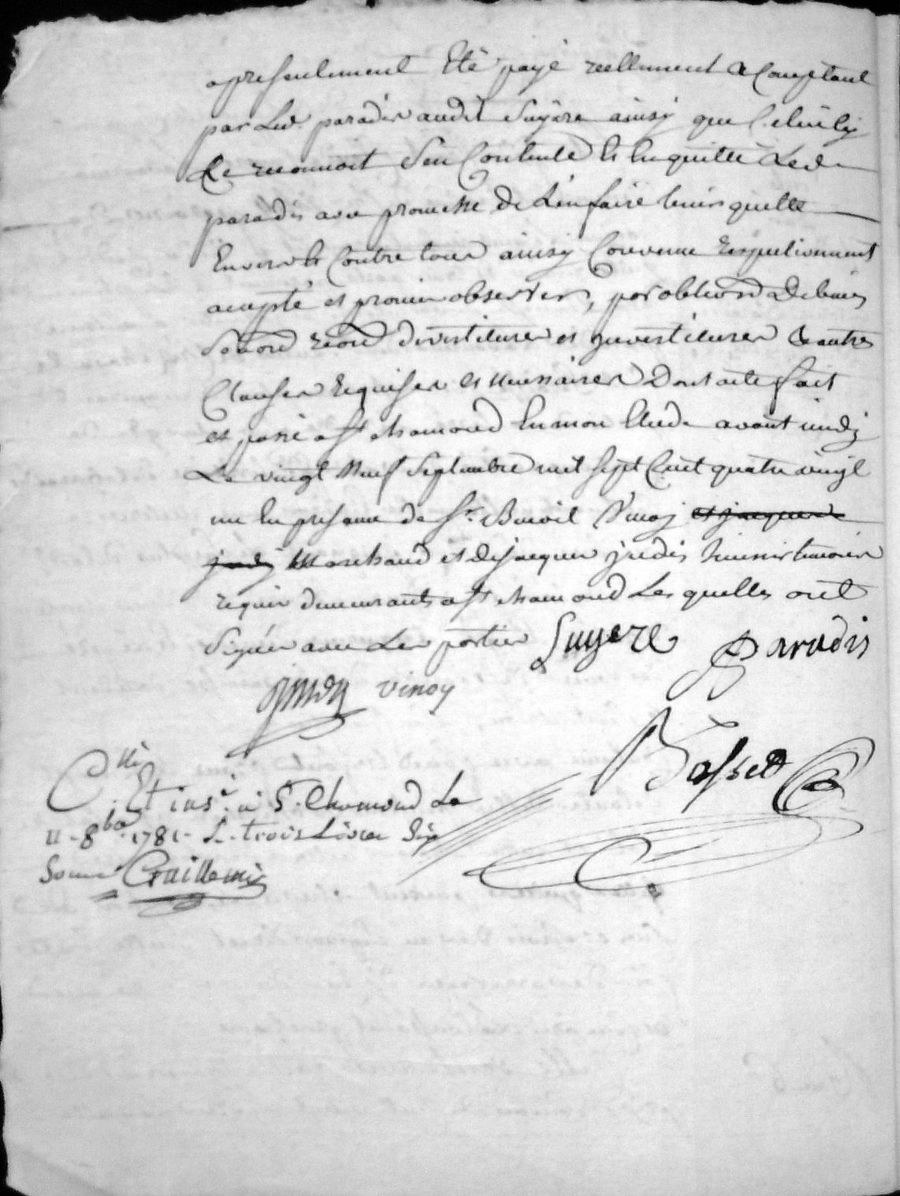 apresentement Eté payé reellement & Comptant
par Led. paradis audit Suyere ainsy que Celuicy
Le reconnoit Sen Contente Et En quitte Led.
paradis avec promesse de L'en faire tenir quitte
Envers Et Contre tous ainsy Convenu Respectivement
accepté et promis observer, par obliond. De biens
Soond. reond. divestitures et jnvestitures & autres
Clauses Requises Et necessaires Dont acte fait
et passé a St. chamond En mon Etude avant midy
Le vingt Neuf Septembre mil Sept Cent quatre vingt
un En presence de Sr. Benoit Vinoy et jacques
Marchand et de jacques
requis demeurants a St. chamond Les quelles ont
Signés avec Les parties Suyere Paradis
vinoy
Basset
Clle.
Et insé. à St. Chamond Le
11 8bre 1781 - R. trois Livres Six
Sous Guillemin